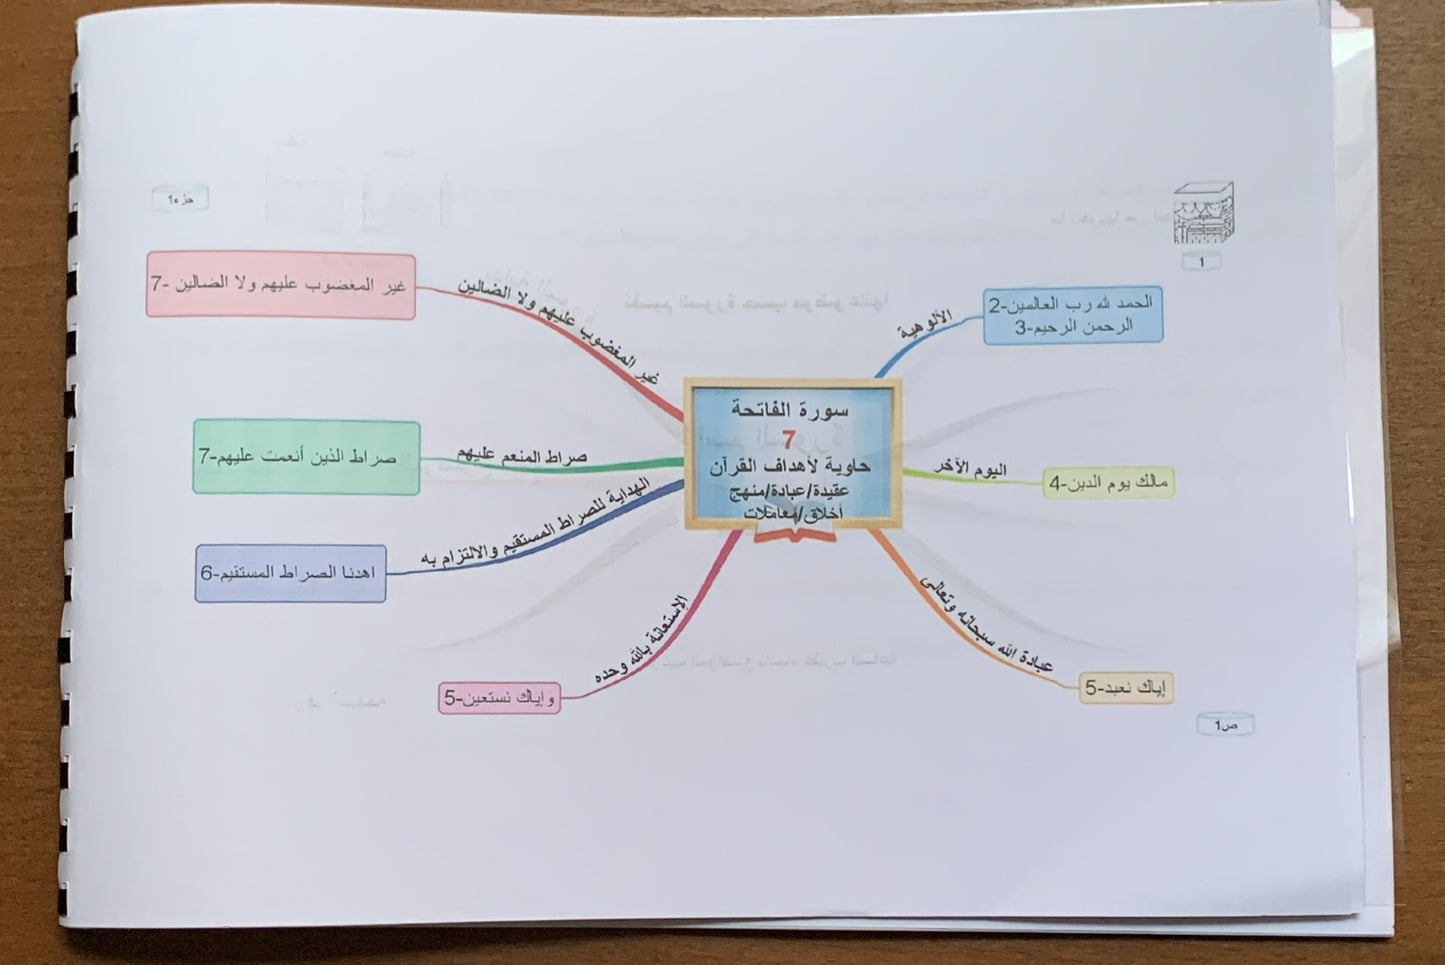 جزء1
1
سورة الفاتحة
7
حاوية لأهداف القرآن
عقيدة/عبادة/منهج
أخلاق/معاملات
الألوهية
الحمد لله رب العالمين-2
الرحمن الرحيم-3
اليوم الآخر
مالك يوم الدين-4
عبادة الله سبحانه وتعالى
إياك نعبد-5
الإستعانة بالله وحده
وإياك نستعين-5
الهداية للصراط المستقيم والالتزام به
اهدنا الصراط المستقيم-6
صراط المنعم عليهم
صراط الذين أنعمت عليهم-7
غير المغضوب عليهم ولا الضالين
غير المغضوب عليهم ولا الضالين -7
ص1